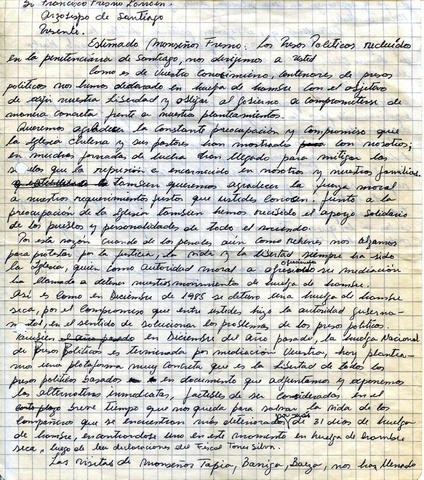 Sr. Francisco Fresno Larraín
Arzobispo de Santiago
Presente.
Estimado Monseñor Fresno: Los Presos Políticos recluidos
en la penitenciaria de Santiago, nos dirijimos a usted
Como es de vuestro conocimiento, centenares de presos
políticos nos hemos declarado en huelga de hambre con el objetivo
de exijir nuestra libertad y oblijar al gobierno a comprometerse de
manera concreta frente a nuestro planteamiento.
Queremos agradecer la constante preocupación y compromiso que
la Iglesia Chilena y sus pastores han mostrado con nosotros;
en muchas jornadas de lucha han llegado para mitigar los
que la represión a encarnado en nosotros y nuestras familias.
también queremos agradecer la fuerza moral
a nuestros requerimientos justos que ustedes conocen, junto a la
preocupación de la Iglesia también hemos recibido el apoyo solidario
de los pueblos y personalidades de todo el mundo.
Por esta razón cuando de los penales, aún como rehenes nos alzamos
para protestar por la justicia, la vida y la libertad siempre ha sido
la Iglesia, quien como autoridad moral a ofrecido su mediación
ha llamado a detener nuestros movimientos de huelga de hambre.
Así es como en Diciembre de 1985 se detuvo una huelga de hambre
seca, por el compromiso que entre ustedes hizo la autoridad guberna-
mental, en el sentido de solucionar los problemas de los presos políticos.
También en Diciembre del año pasado, la huelga Nacional
de presos Políticos es terminada por mediación vuestra, hoy plantea-
mos una plataforma muy concreta que es la libertad de todos los
presos políticos basados en documento que adjuntamos y exponemos
las alternativas inmediatas, factibles de ser consideradas en el
breve tiempo que nos queda para salvar la vida de los
compañeros que se encuentran más deteriorados de 31 días de huelga
de hambre, encontrandose uno en este momento en huelga de hambre
seca, luego de las declaraciones del Fiscal Torres Silva.
Las visitas de monseñor Tapia, Baeza, nos han llenado